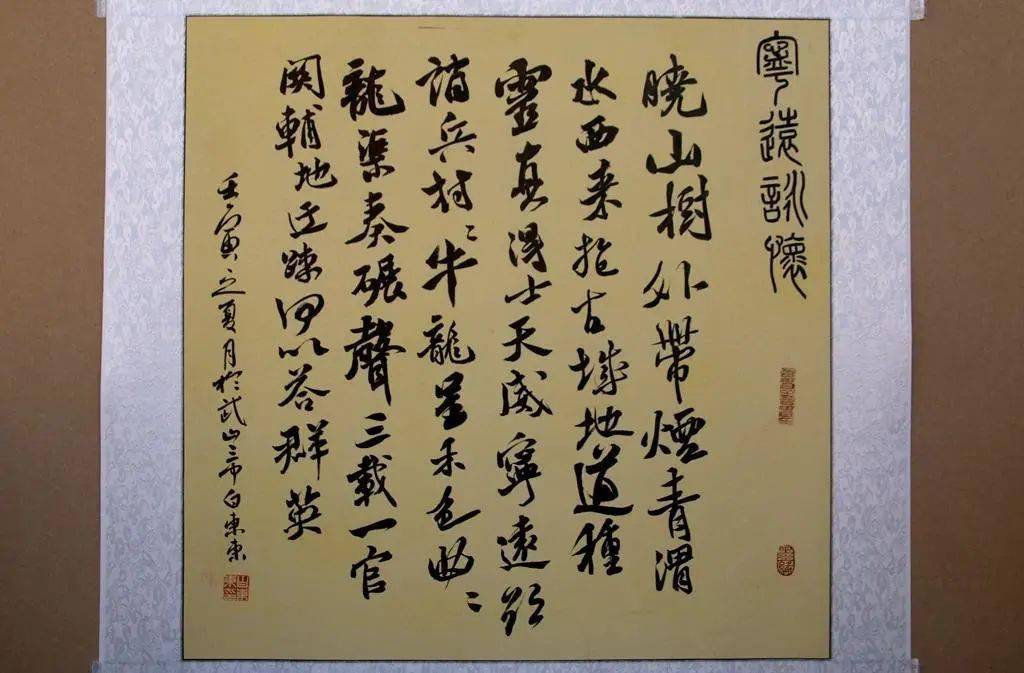 寧遠詠懷
曉山樹外帶煙青渭
水西来抱古城地道種
靈真得士天威寧遠欲
消兵村々牛隴呈禾色畝々
龍渠奏碾聲三載一官
関輔地迂疎何以答群英
壬寅之夏月於武山三希白東東